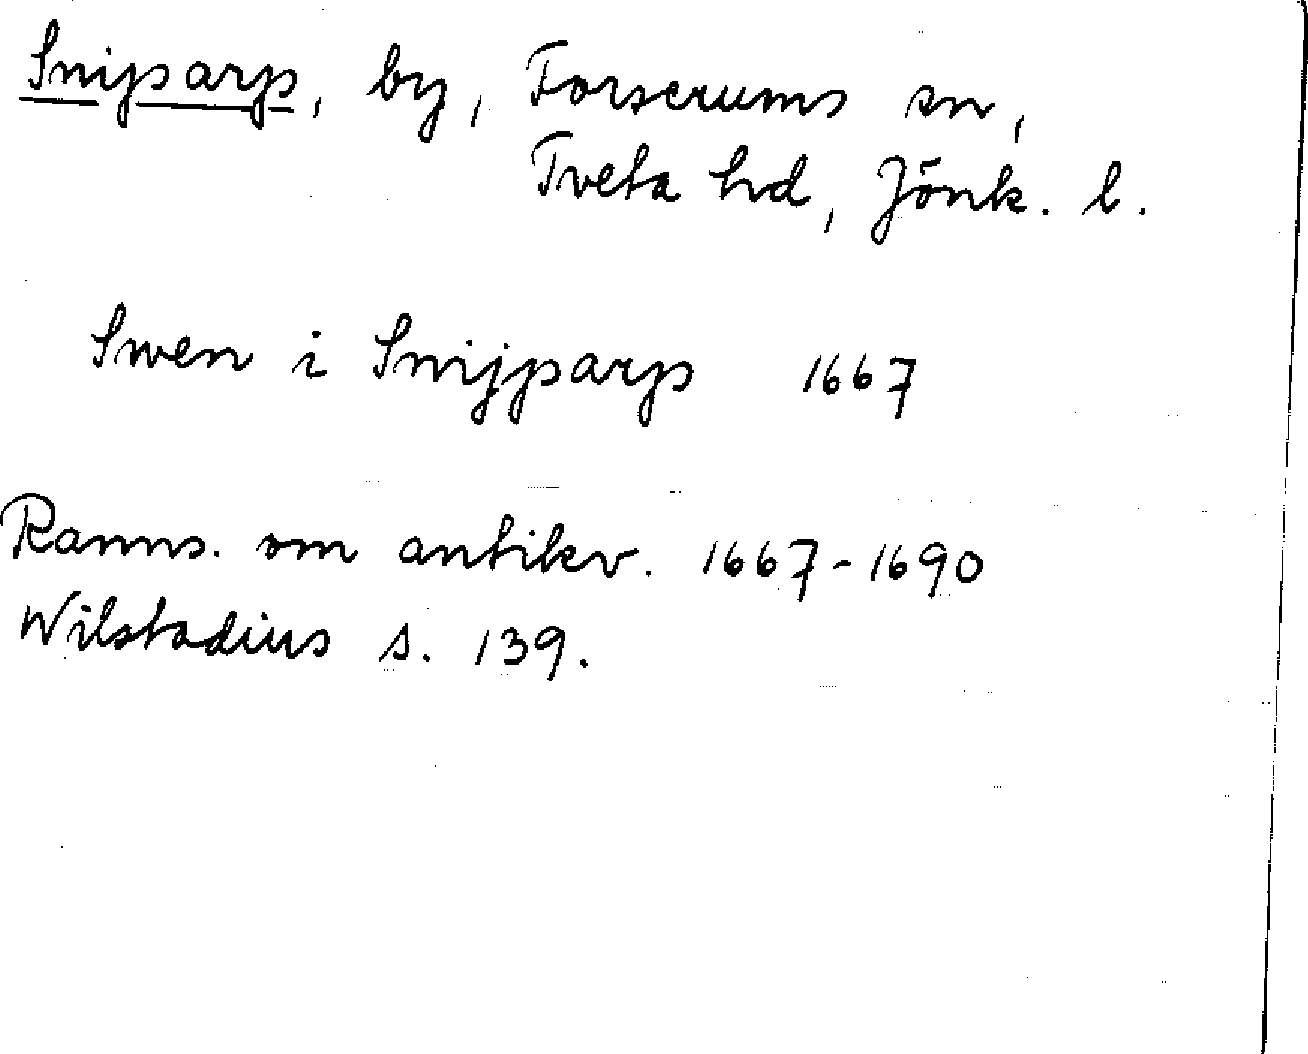 Sniparp, by, Forserums sn,
Tveta hd, Jönk. l.
Swen i Snijparp 1667
Ranns. om antikv. 1667-1690
Wilstadius s. 139.